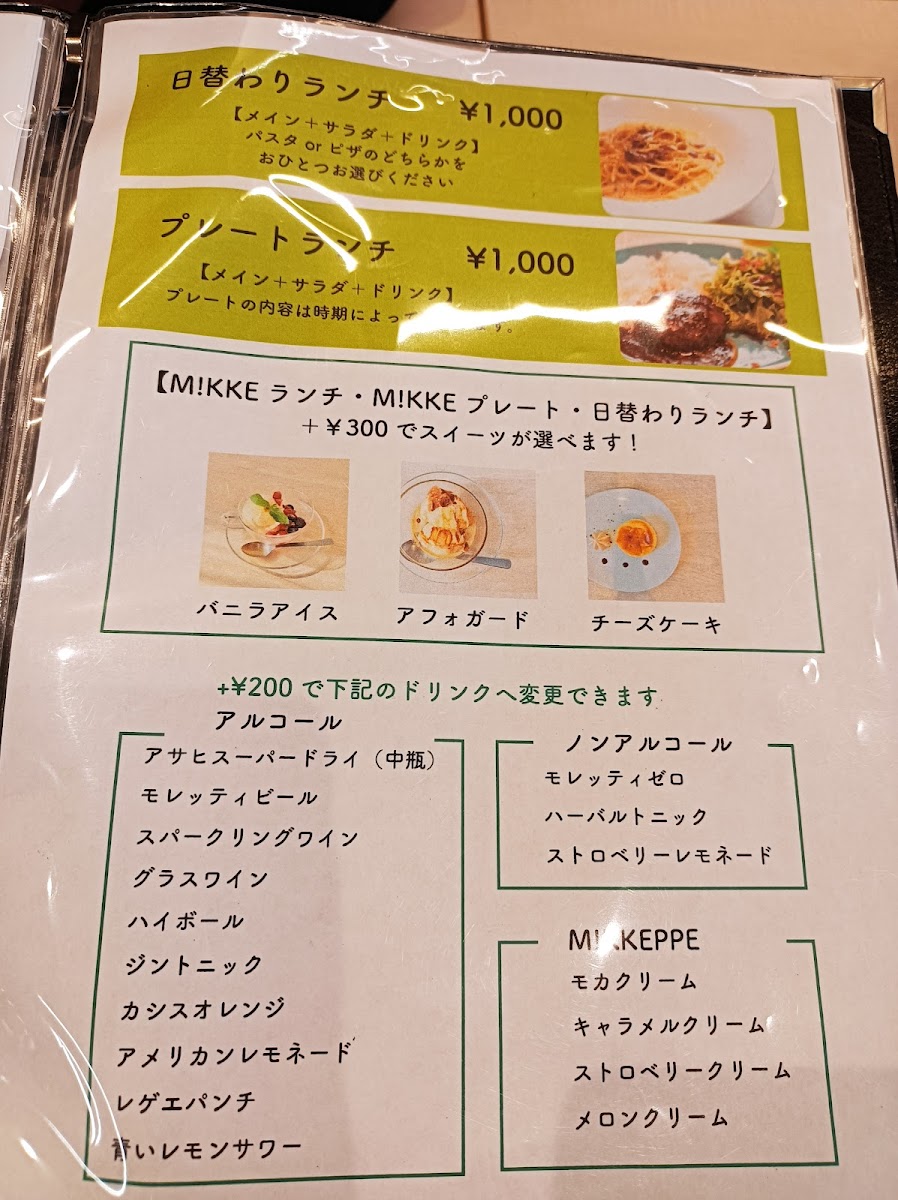 日替わりランチ ¥1,000
【メイン＋サラダ＋ドリンク】
パスタ or ピザのどちらかを
おひとつお選びください
プレートランチ ¥1,000
【メイン＋サラダ＋ドリンク】
プレートの内容は時期によって
【M!KKE ランチ・M!KKE プレート・日替わりランチ】
＋¥300 でスイーツが選べます！
バニラアイス アフォガード チーズケーキ
+¥200 で下記のドリンクへ変更できます
アルコール
アサヒスーパードライ（中瓶）
モレッティビール
スパークリングワイン
グラスワイン
ハイボール
ジントニック
カシスオレンジ
アメリカンレモネード
レゲエパンチ
青いレモンサワー
ノンアルコール
モレッティゼロ
ハーバルトニック
ストロベリーレモネード
M!KKEPPE
モカクリーム
キャラメルクリーム
ストロベリークリーム
メロンクリーム